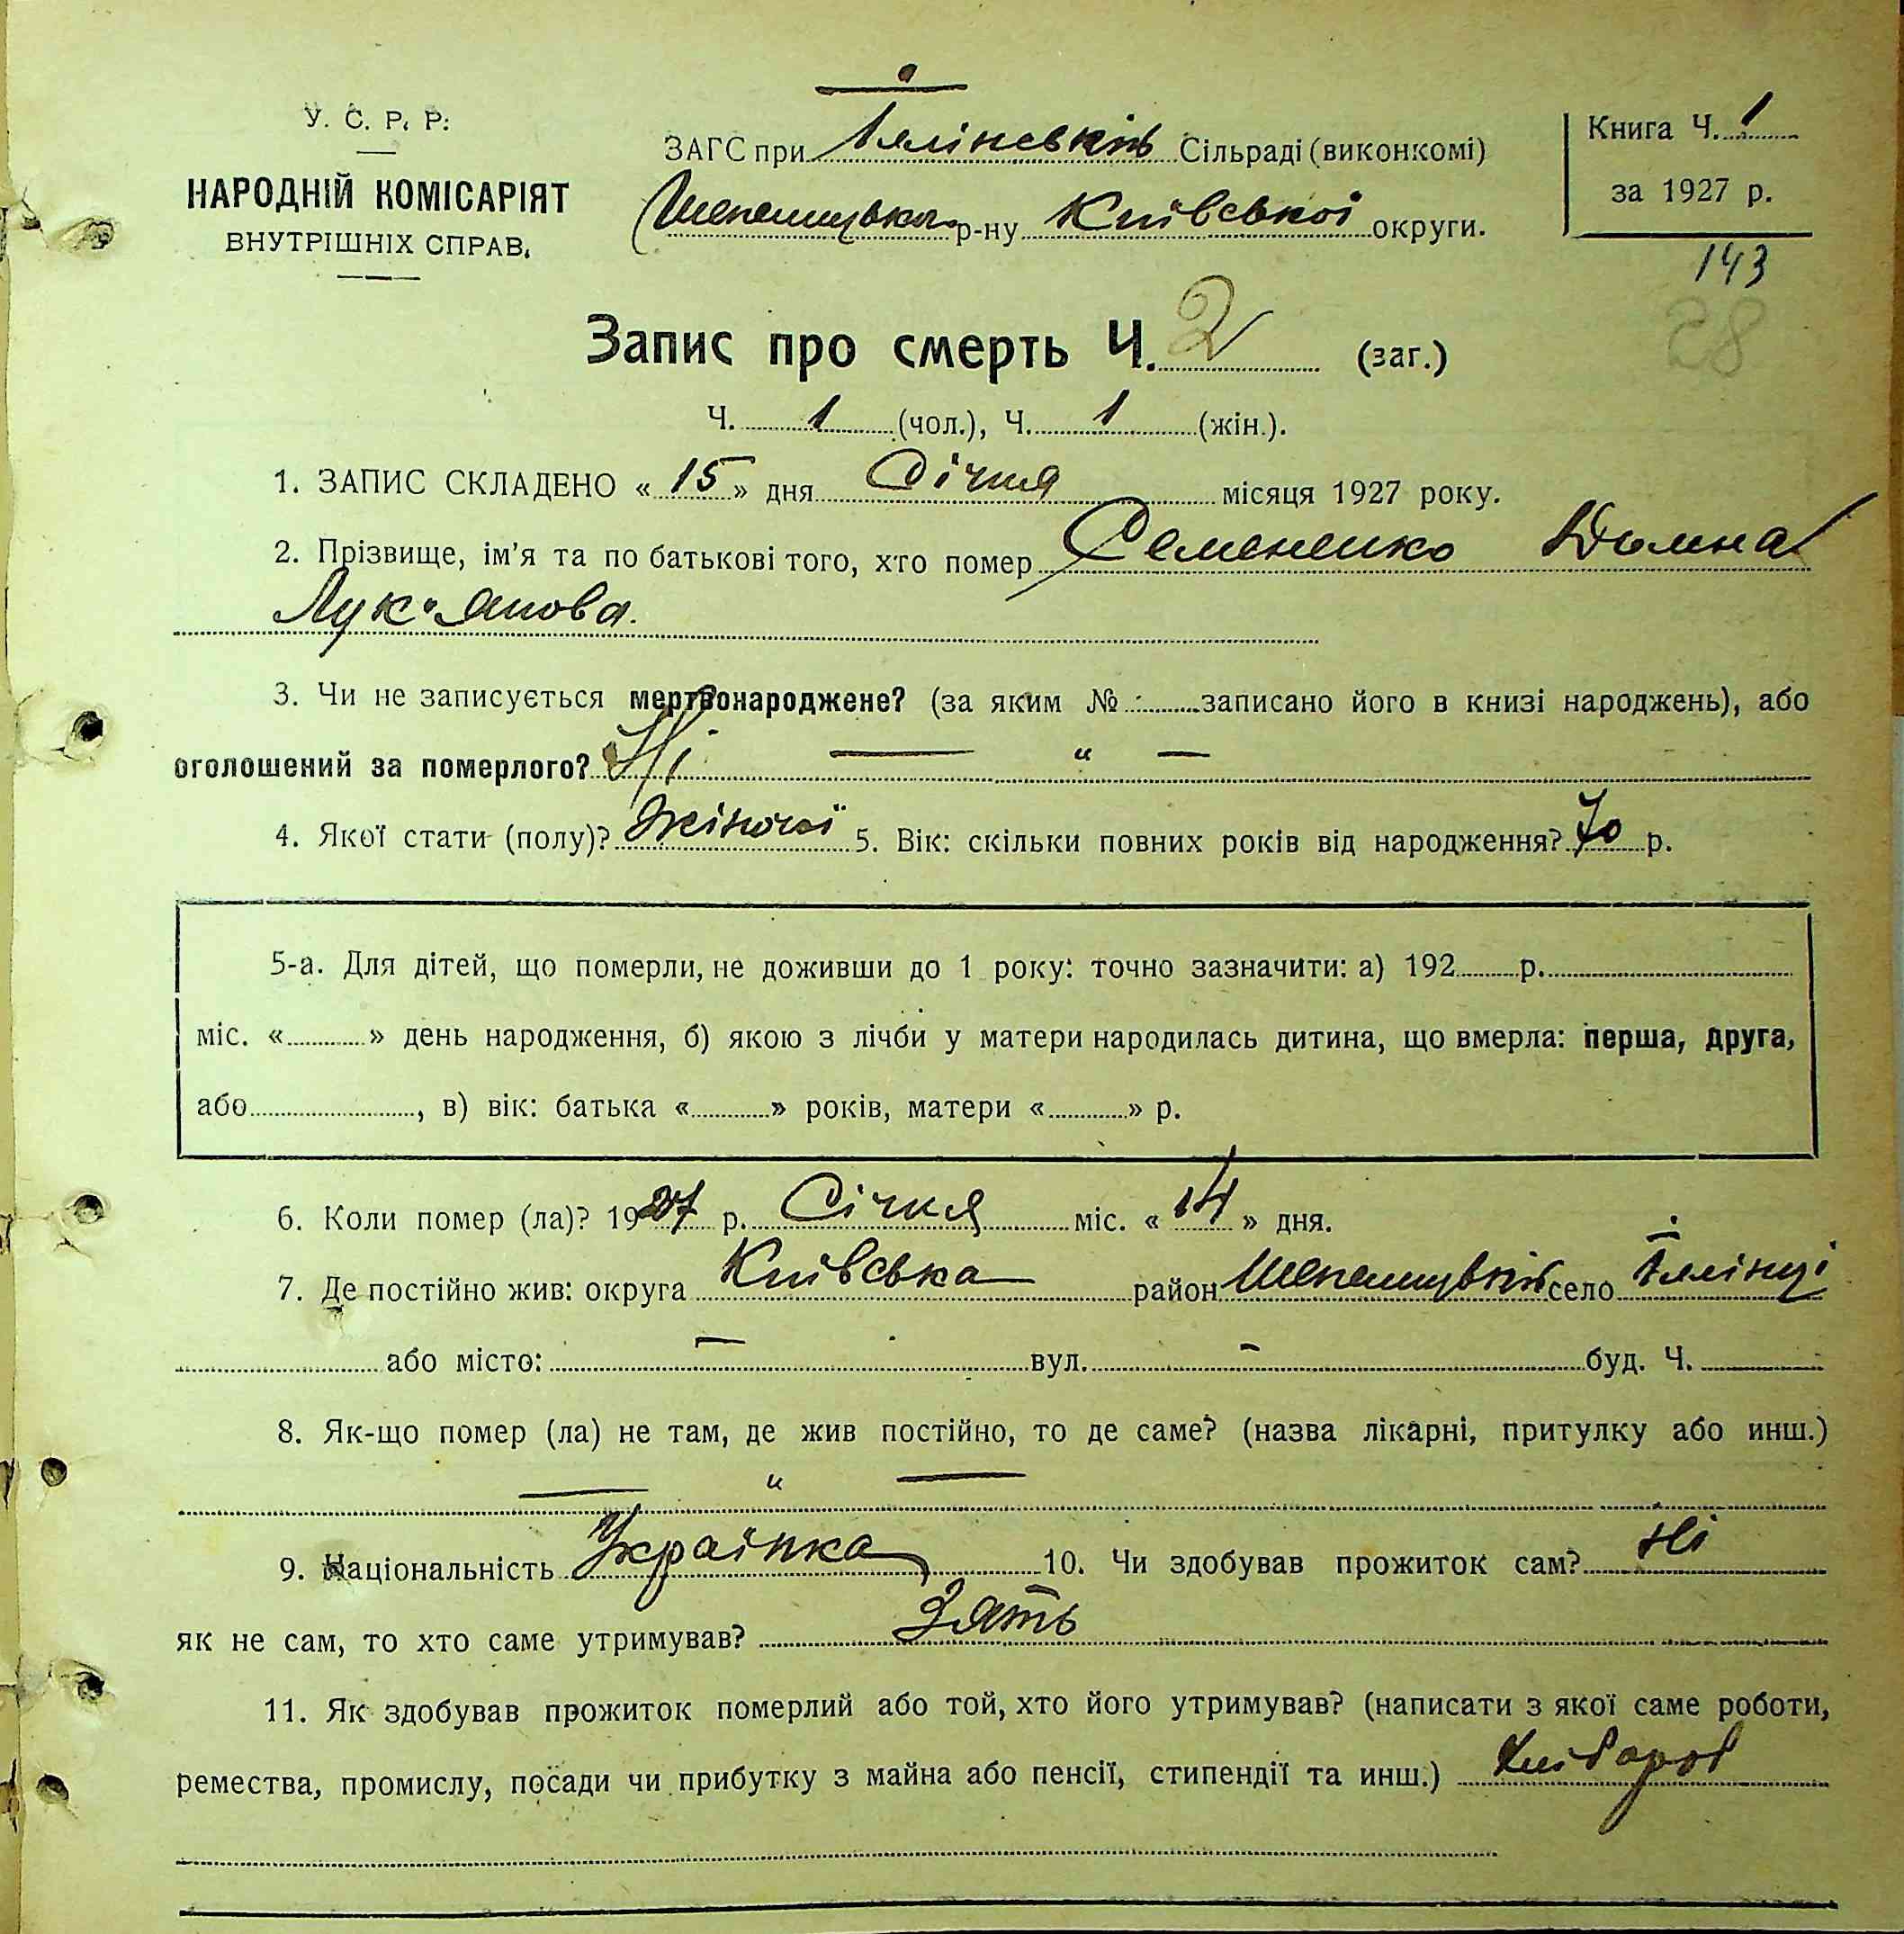 У. С. Р. Р.
ЗАГС при Іллінській Сільраді (виконкомі)
Книга Ч. 1
НАРОДНІЙ КОМІСАРІЯТ
за 1927 р.
ВНУТРІШНІХ СПРАВ.
р-ну Київської округи.
143
28
Запис про смерть Ч. 2 (заг.)
Ч. 1 (чол.), Ч. 1 (жін.).
1. ЗАПИС СКЛАДЕНО « 15 » дня Січня місяця 1927 року.
2. Прізвище, ім'я та по батькові того, хто помер Семененко Домна
Лук'янова.
3. Чи не записується мертвонароджене? (за яким № записано його в книзі народжень), або
оголошений за померлого? Ні — „ —
4. Якої стати (полу)? Жіночої 5. Вік: скільки повних років від народження? 70 р.
5-а. Для дітей, що померли, не доживши до 1 року: точно зазначити: а) 192 р.
міс. « » день народження, б) якою з лічби у матери народилась дитина, що вмерла: перша, друга,
або , в) вік: батька « » років, матери « » р.
6. Коли помер (ла)? 1927 р. Січня міс. « 14 » дня.
7. Де постійно жив: округа Київська район село Іллінці
або місто: — вул. — буд. Ч.
8. Як-що помер (ла) не там, де жив постійно, то де саме? (назва лікарні, притулку або инш.)
— „ —
9. Національність Українка 10. Чи здобував прожиток сам? Ні
як не сам, то хто саме утримував? Зять
11. Як здобував прожиток померлий або той, хто його утримував? (написати з якої саме роботи,
ремества, промислу, посади чи прибутку з майна або пенсії, стипендії та инш.) Хлібороб